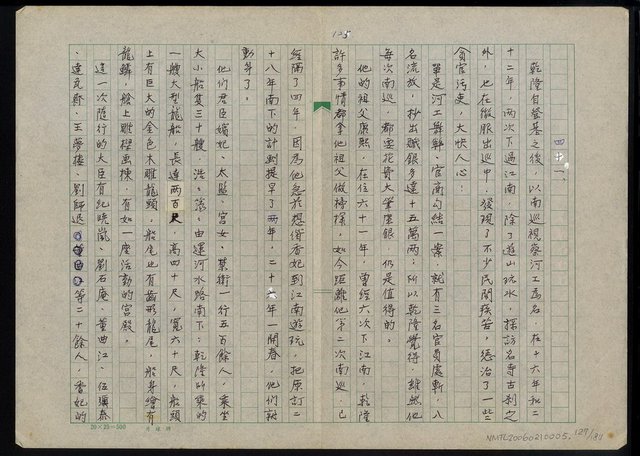 125
四十一、
乾隆自登基之後，以南巡視察河工為名，在十六年和二
十二年，兩次下過江南，除了遊山玩水，探訪名寺古剎之
外，也在微服出巡中，發現了不少民間疾苦，懲治了一些
貪官污吏，大快人心：
單是河工舞弊、官商勾結一案，就有三名官員處斬，八
名流放，抄出贓銀多達十五萬兩；所以乾隆覺得，雖然他
每次南巡，都要花費大筆庫銀，仍是值得的。
他的祖父康熙，在位六十一年，曾經六次下江南，乾隆
許多事情都拿他祖父做榜樣，如今距離他第二次南巡，已
經隔了四年，因為他急於想偕香妃到江南遊玩，把原訂二
十八年南下的計劃提早了兩年，二十六年一開春，他們就
動身了。
他們君臣嬪妃、太監、宮女、禁衛一行五百餘人，乘坐
大小船隻三十艘，浩浩蕩蕩由運河水路南下；乾隆所乘的
一艘大型龍船，長達兩百尺，高四十尺，寬六十尺，船頭
上有巨大的金色木雕龍頭，船尾也有齒形龍尾，船身繪有
龍鱗，艙上雕樑畫棟，有如一座活動的宮殿。
這一次隨行的大臣有紀曉嵐、劉石庵、董曲江、伍彌泰
、達克斯、王夢樓、劉師退
等二十餘人，香妃的
20×25=500
NMTL20060210005.
129/184